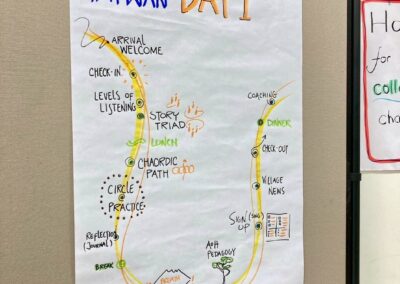 TAIWAN DAY 1
ARRIVAL
WELCOME
CHECK-IN
LEVELS OF
LISTENING
STORY
TRIAD
LUNCH
CHAORDIC
PATH
CIRCLE
PRACTICE
REFLECTION
(JOURNAL)
BREAK
AoH
PEDAGOGY
SIGN (SONG)
UP
VILLAGE
NEWS
CHECK-OUT
DINNER
COACHING
for